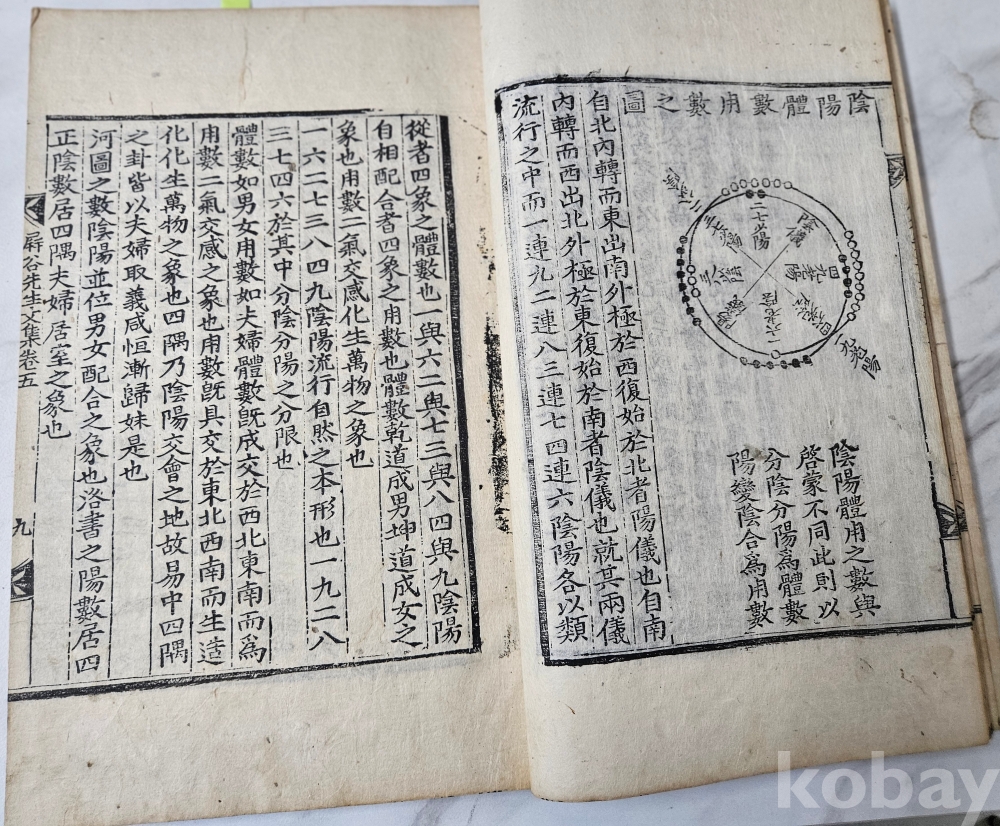 陰陽體數用數之圖
二七少陽
陰儀
四九老陽
一六老陰
九老陽
陰陽體用之數與
啓蒙不同此則以
分陰分陽爲體數
陽變陰合爲用數
自北內轉而東出南外極於西復始於北者陽儀也自南
內轉而西出北外極於東復始於南者陰儀也就其兩儀
流行之中而一連九二連八三連七四連六陰陽各以類
從者四象之體數也一與六二與七三與八四與九陰陽
自相配合者四象之用數也體數乾道成男坤道成女之
象也用數二氣交感化生萬物之象也
一六二七三八四九陰陽流行自然之本形也一九二八
三七四六於其中分陰分陽之分限也
體數如男女用數如夫婦體數旣成交於西北東南而爲
用數二氣交感之象也用數旣具交於東北西南而生造
化化生萬物之象也四隅乃陰陽交會之地故易中四隅
之卦皆以夫婦取義咸恒漸歸妹是也
河圖之數陰陽並位男女配合之象也洛書之陽數居四
正陰數居四隅夫婦居室之象也
屛谷先生文集卷五
九
kobay